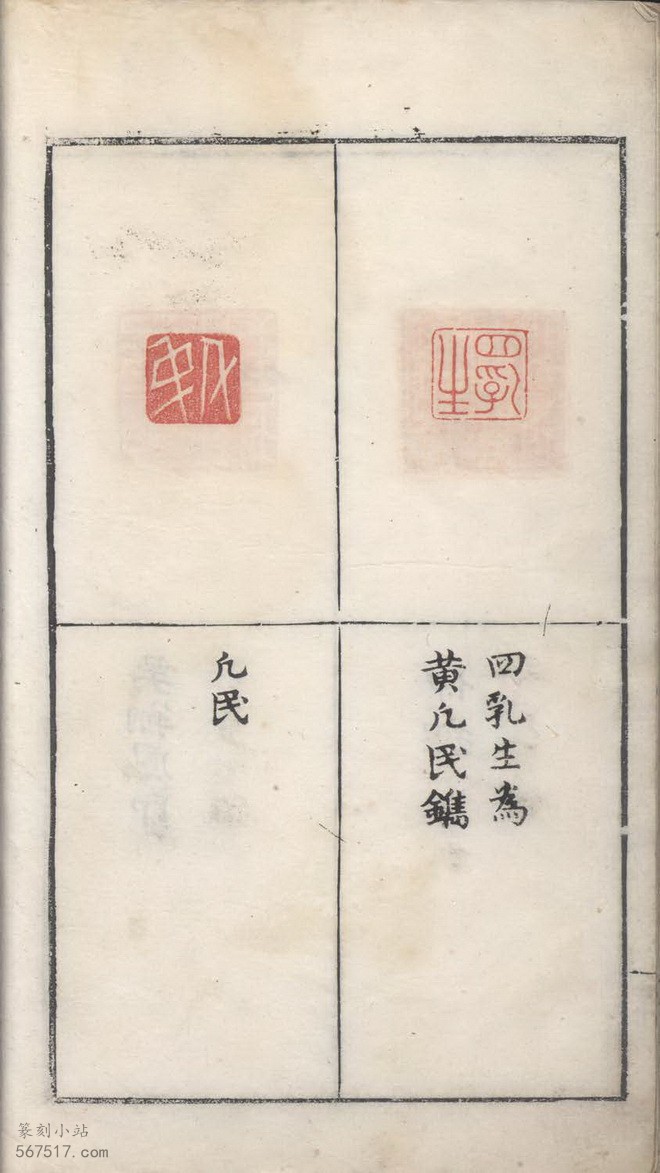 四乳生
四乳生為
黄凡民鐫
凡民
凡民
篆刻小站
567517.com